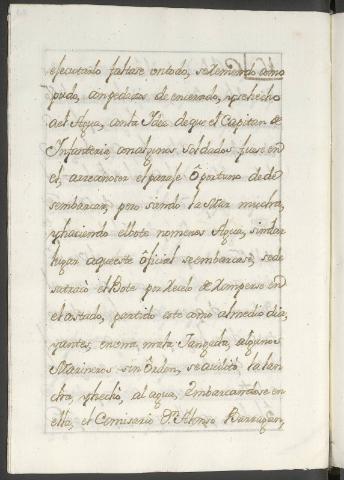 executarlo faltase entodo, se Remendò como
pudo, con pedazos de encerado, y se hecho
ael Agua, con la Idea de que el Capitan de
Infanteria, con algunos Soldados fuese en
el, a reconocer el paraje ôportuno de de
sembarcar, pero siendo la Mar mucha,
y haciendo el bote no menos Agua, sin dar
lugar aqueste ôficial se embarcase, se de
satracò el Bote por Recelo de Romperse en
el costado, partido este como al medio dia,
y antes, en una mala Jangada, algunos
Marineros sin ôrden, se avilitò la lan
cha, y hechò, al agua, Embarcandose en
ella, el Comisario Dn. Alonso